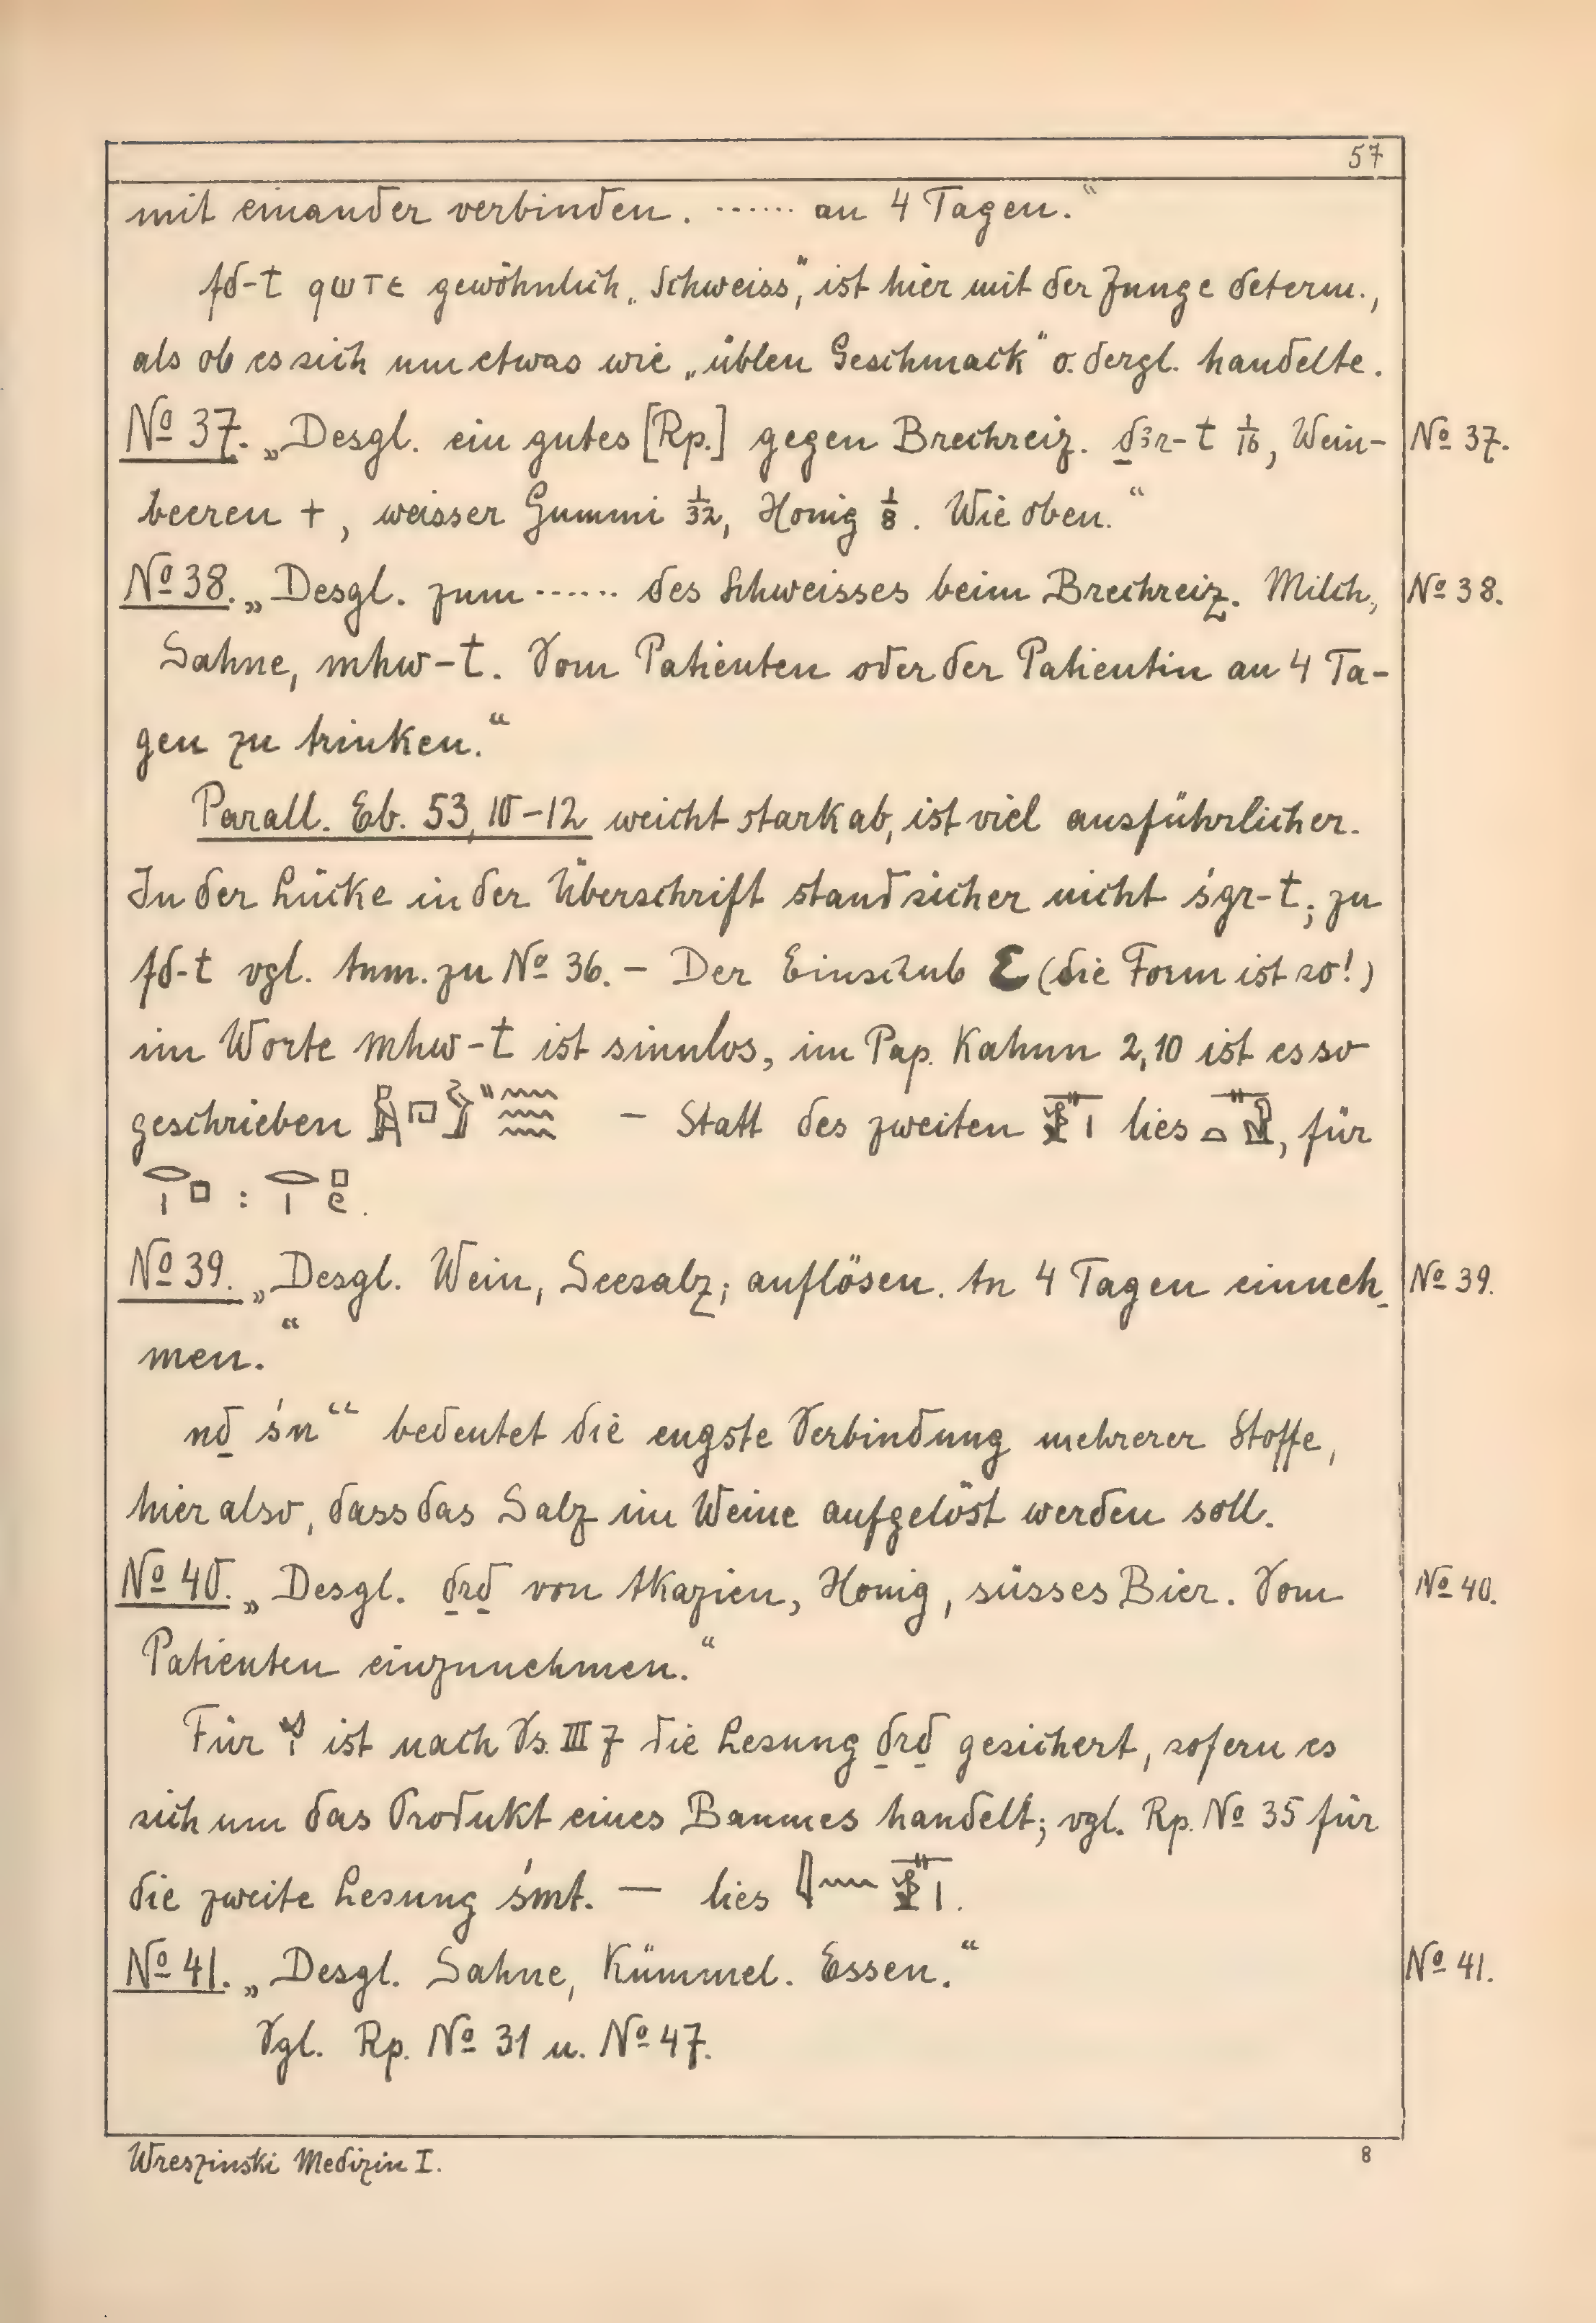 57
mit einander verbinden. ...... an 4 Tagen.“
fd-t ϥⲱⲧⲉ gewöhnlich „Schweiss“, ist hier mit der Zunge determ.,
als ob es sich um etwas wie „üblen Geschmack“ o. dergl. handelte.
№ 37. „Desgl. ein gutes [Rp.] gegen Brechreiz. ḏꜣr-t 1/16, Wein- № 37.
beeren +, weisser Gummi 1/32, Honig 1/8. Wie oben.“
№ 38. „Desgl. zum ...... des Schweisses beim Brechreiz. Milch, № 38.
Sahne, mhw-t. Vom Patienten oder der Patientin an 4 Ta-
gen zu trinken.“
Parall. Eb. 53, 10-12 weicht stark ab, ist viel ausführlicher.
In der Lücke in der Überschrift stand sicher nicht śgr-t; zu
fd-t vgl. Anm. zu № 36. — Der Einschub (die Form ist so!)
im Worte mhw-t ist sinnlos, im Pap. Kahun 2,10 ist es so
geschrieben — Statt des zweiten lies , für
: .
№ 39. „Desgl. Wein, Seesalz; auflösen. An 4 Tagen einneh- № 39.
men.“
nḏ śn“ bedeutet die engste Verbindung mehrerer Stoffe,
hier also, dass das Salz im Weine aufgelöst werden soll.
№ 40. „Desgl. ḏrḏ von Akazien, Honig, süsses Bier. Vom № 40.
Patienten einzunehmen.“
Für ist nach Vs. III 7 die Lesung ḏrḏ gesichert, sofern es
sich um das Produkt eines Baumes handelt; vgl. Rp. № 35 für
die zweite Lesung śmt. — lies .
№ 41. „Desgl. Sahne, Kümmel. Essen.“ № 41.
Vgl. Rp. № 31 u. № 47.
Wreszinski Medizin I. 8